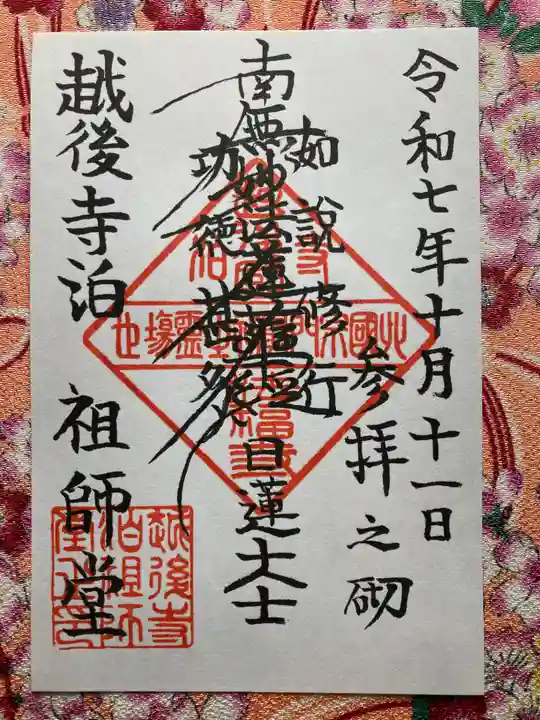 令和七年十月十一日
参拝之砌
如説修行
南無妙法蓮華経 日蓮大士
功徳甚多
越後寺泊 祖師堂
越後寺
泊祖師